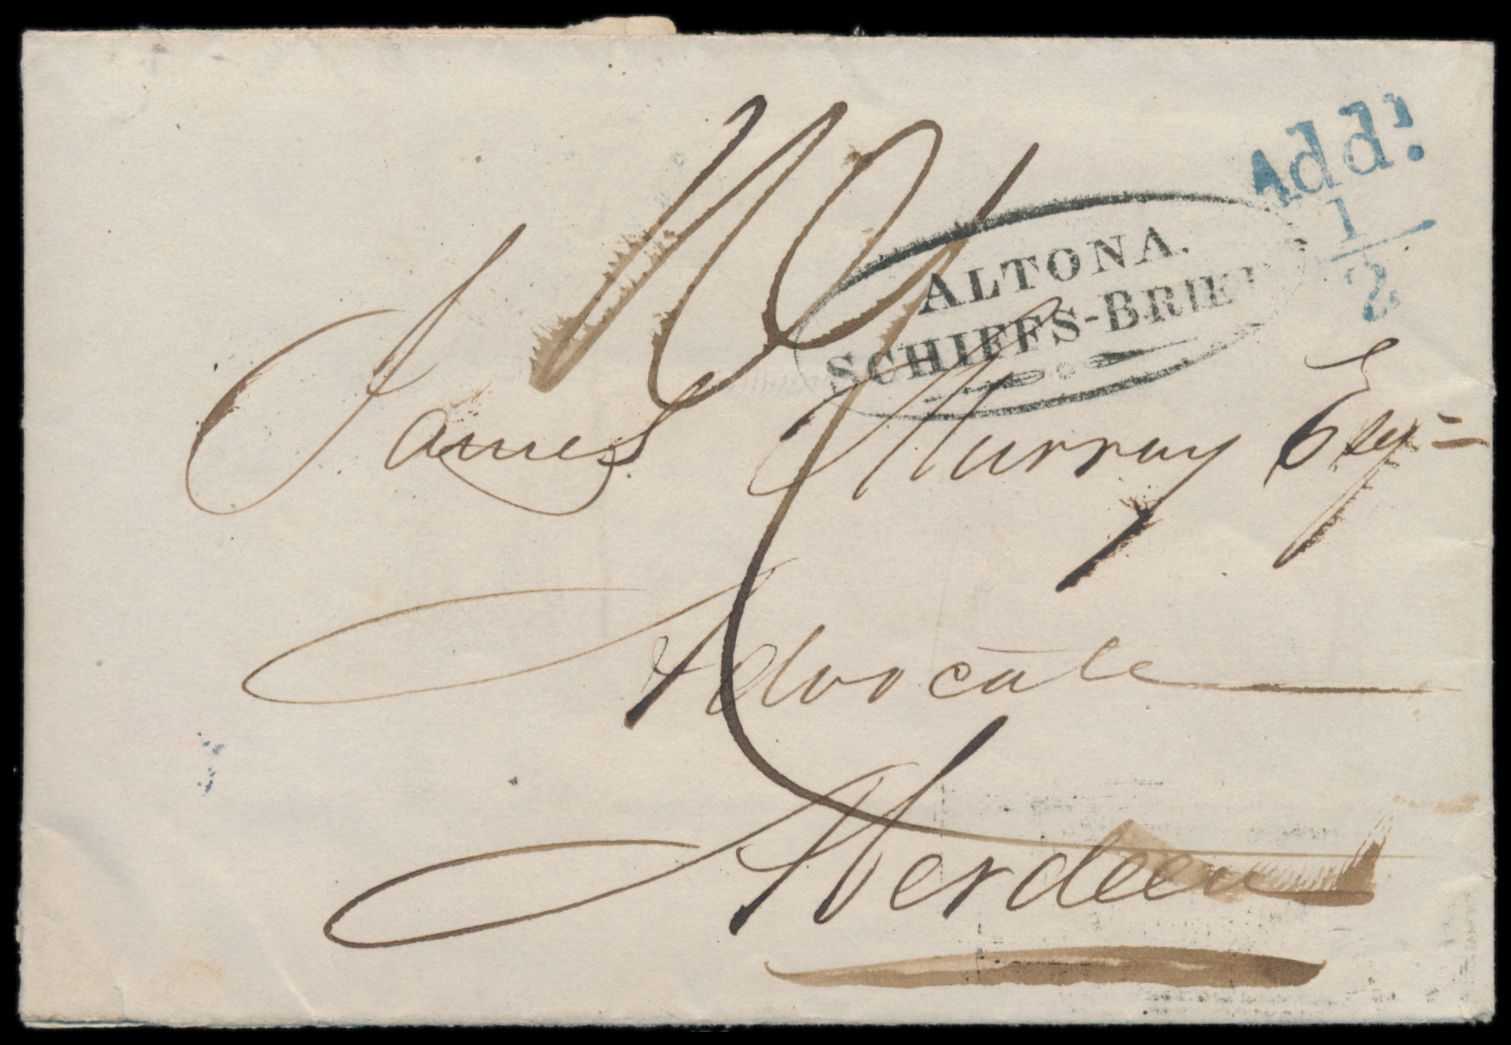 Add!
1
2
ALTONA.
SCHIFFS-BRIEF
James Murray Esq
Advocate
Aberdeen